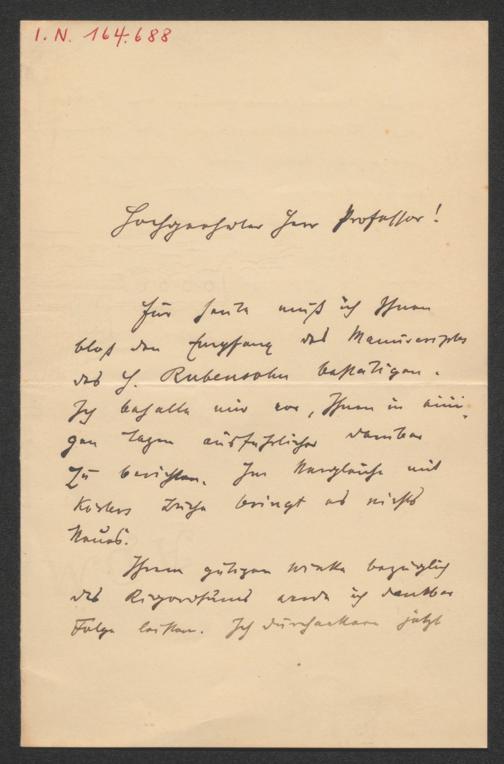 I. N. 164.688
Hochgeehrter Herr Professor!
Für heute muß ich Ihnen
bloß den Empfang des Manuscriptes
des H. Rubensohn bestätigen.
Ich behalte mir vor, Ihnen in eini-
gen Tagen ausführlicher darüber
zu berichten. Im Vergleiche mit
Kösters Buche bringt es nichts
Neues.
Ihrem gütigen Winke bezüglich
des werde ich dankbar
Folge leisten. Ich durchackere jetzt